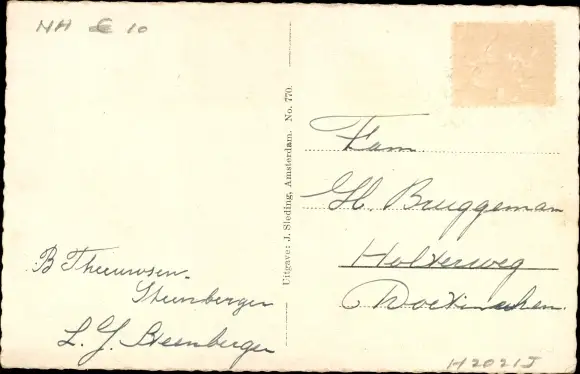 NH € 10
B Theeuwsen-
Steenberger
L. J. Steenberger
Uitgave: J. Sleding, Amsterdam. No. 770.
Fam
H. Bruggeman
Holterweg
Doetinchem.
H2021J